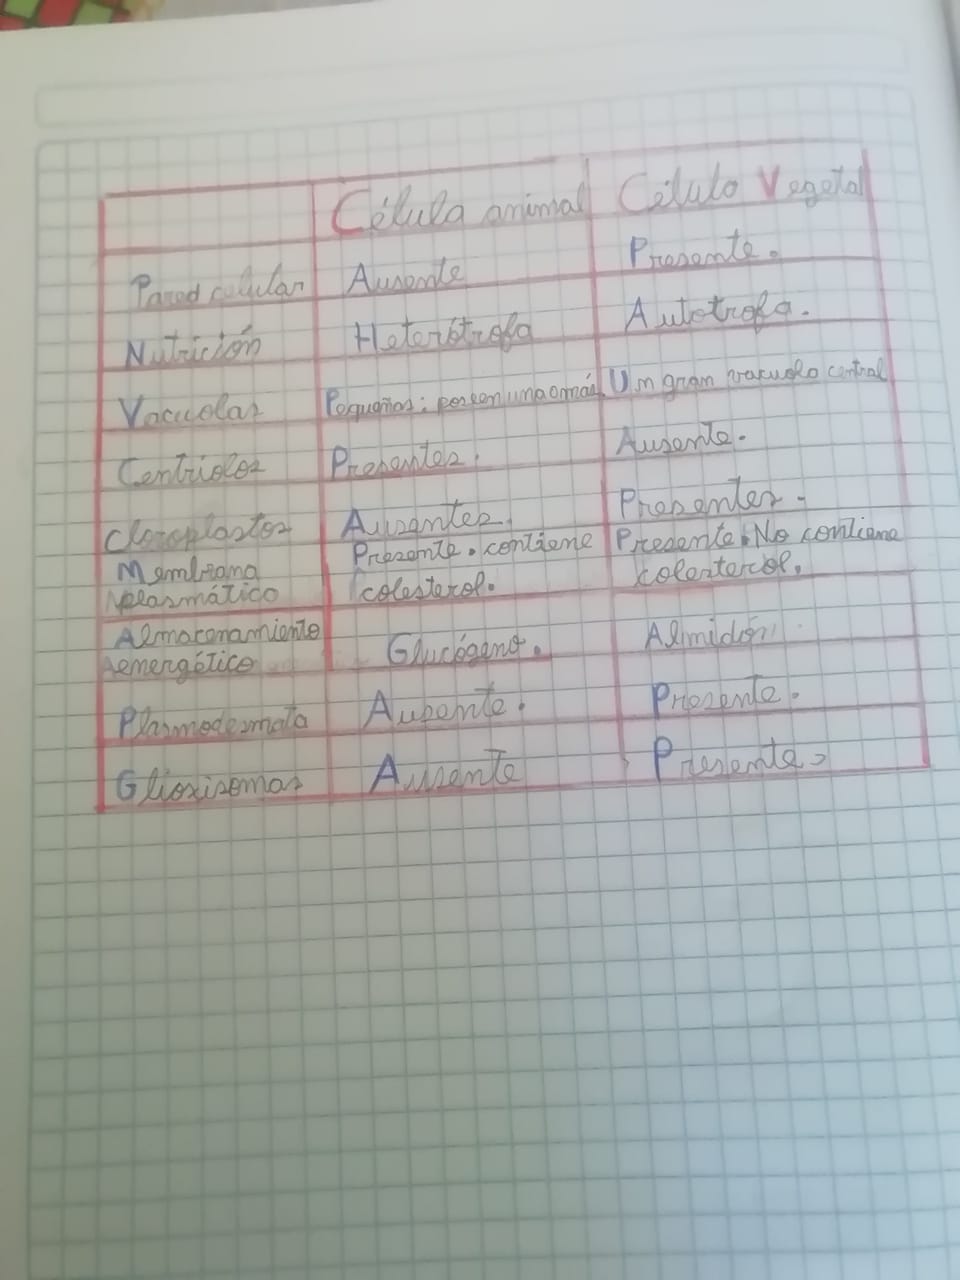 Célula animal Célula Vegetal
Pared celular Ausente Presente.
Nutrición Heterótrofa Autotrofa.
Vacuolas Pequeñas: poseen una o más. Un gran vacuola central
Centriolos Presentes. Ausente.
Cloroplastos Ausentes. Presentes.
Membrana Presente. contiene Presente. No contiene
plasmático colesterol. colesterol.
Almacenamiento
energético Glucógeno. Almidón
Plasmodesmata Ausente. Presente.
Glioxisomas Ausente Presente.